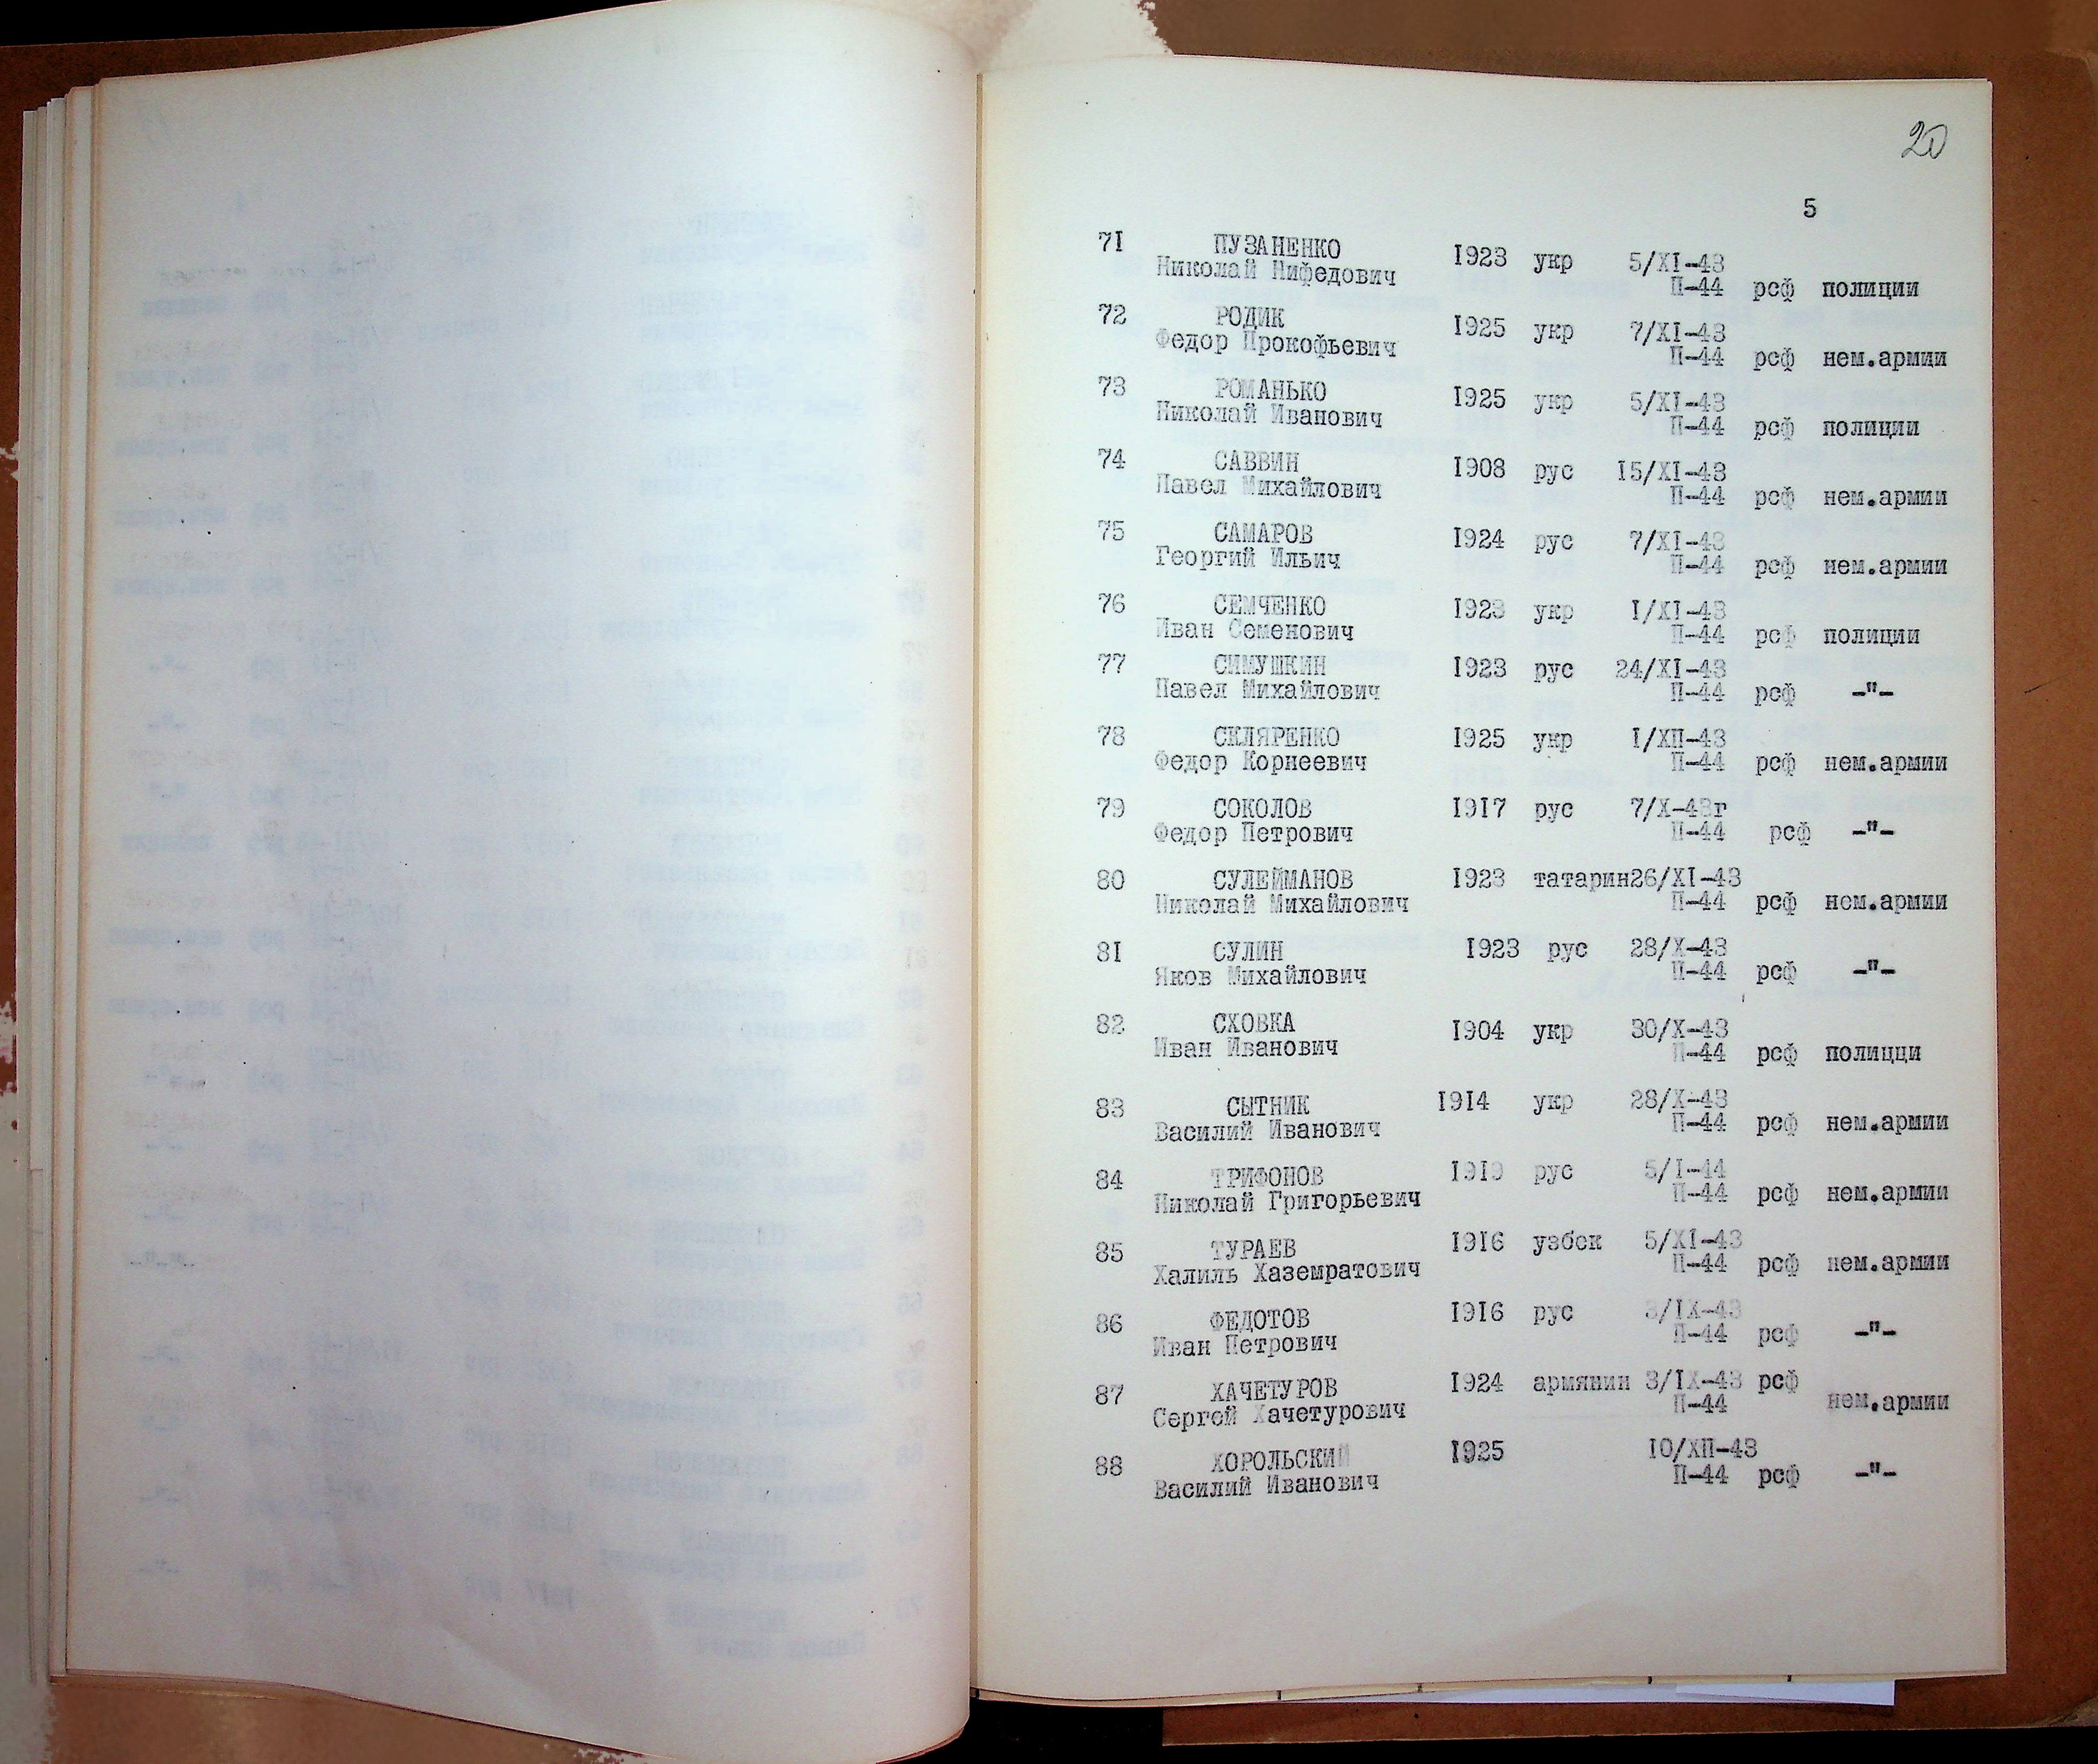 20
5
71 ПУЗАНЕНКО 1923 укр 5/XI-43
Николай Нифедович П-44 рсф полиции
72 РОДИК 1925 укр 7/XI-43
Федор Прокофьевич П-44 рсф нем.армии
73 РОМАНЬКО 1925 укр 5/XI-43
Николай Иванович П-44 рсф полиции
74 САВВИН 1908 рус 15/XI-43
Павел Михайлович П-44 рсф нем.армии
75 САМАРОВ 1924 рус 7/XI-43
Георгий Ильич П-44 рсф нем.армии
76 СЕМЧЕНКО 1923 укр I/XI-43
Иван Семенович П-44 рсф полиции
77 СИМУШКИН 1923 рус 24/XI-43
Павел Михайлович П-44 рсф -"-
78 СКЛЯРЕНКО 1925 укр I/XП-43
Федор Корнеевич П-44 рсф нем.армии
79 СОКОЛОВ 1917 рус 7/X-43г
Федор Петрович П-44 рсф -"-
80 СУЛЕЙМАНОВ 1923 татарин26/XI-43
Николай Михайлович П-44 рсф нем.армии
81 СУЛИН 1923 рус 28/X-43
Яков Михайлович П-44 рсф -"-
82 СХОВКА 1904 укр 30/X-43
Иван Иванович П-44 рсф полицци
83 СЫТНИК 1914 укр 28/X-43
Василий Иванович П-44 рсф нем.армии
84 ТРИФОНОВ 1919 рус 5/I-44
Николай Григорьевич П-44 рсф нем.армии
85 ТУРАЕВ 1916 узбек 5/XI-43
Халиль Хаземратович П-44 рсф нем.армии
86 ФЕДОТОВ 1916 рус 3/IX-43
Иван Петрович П-44 рсф -"-
87 ХАЧЕТУРОВ 1924 армянин 3/IX-43 рсф
Сергей Хачетурович П-44 нем.армии
88 ХОРОЛЬСКИЙ 1925 10/XП-43
Василий Иванович П-44 рсф -"-